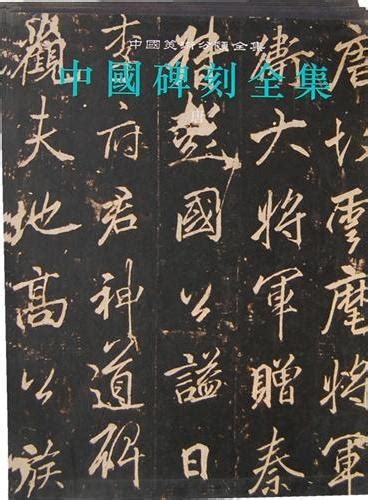 中國美術分類全集
中國碑刻全集
唐故雲麾將軍
衛大將軍贈秦
彭國公謚曰
李府君神道碑
觀夫地高公族